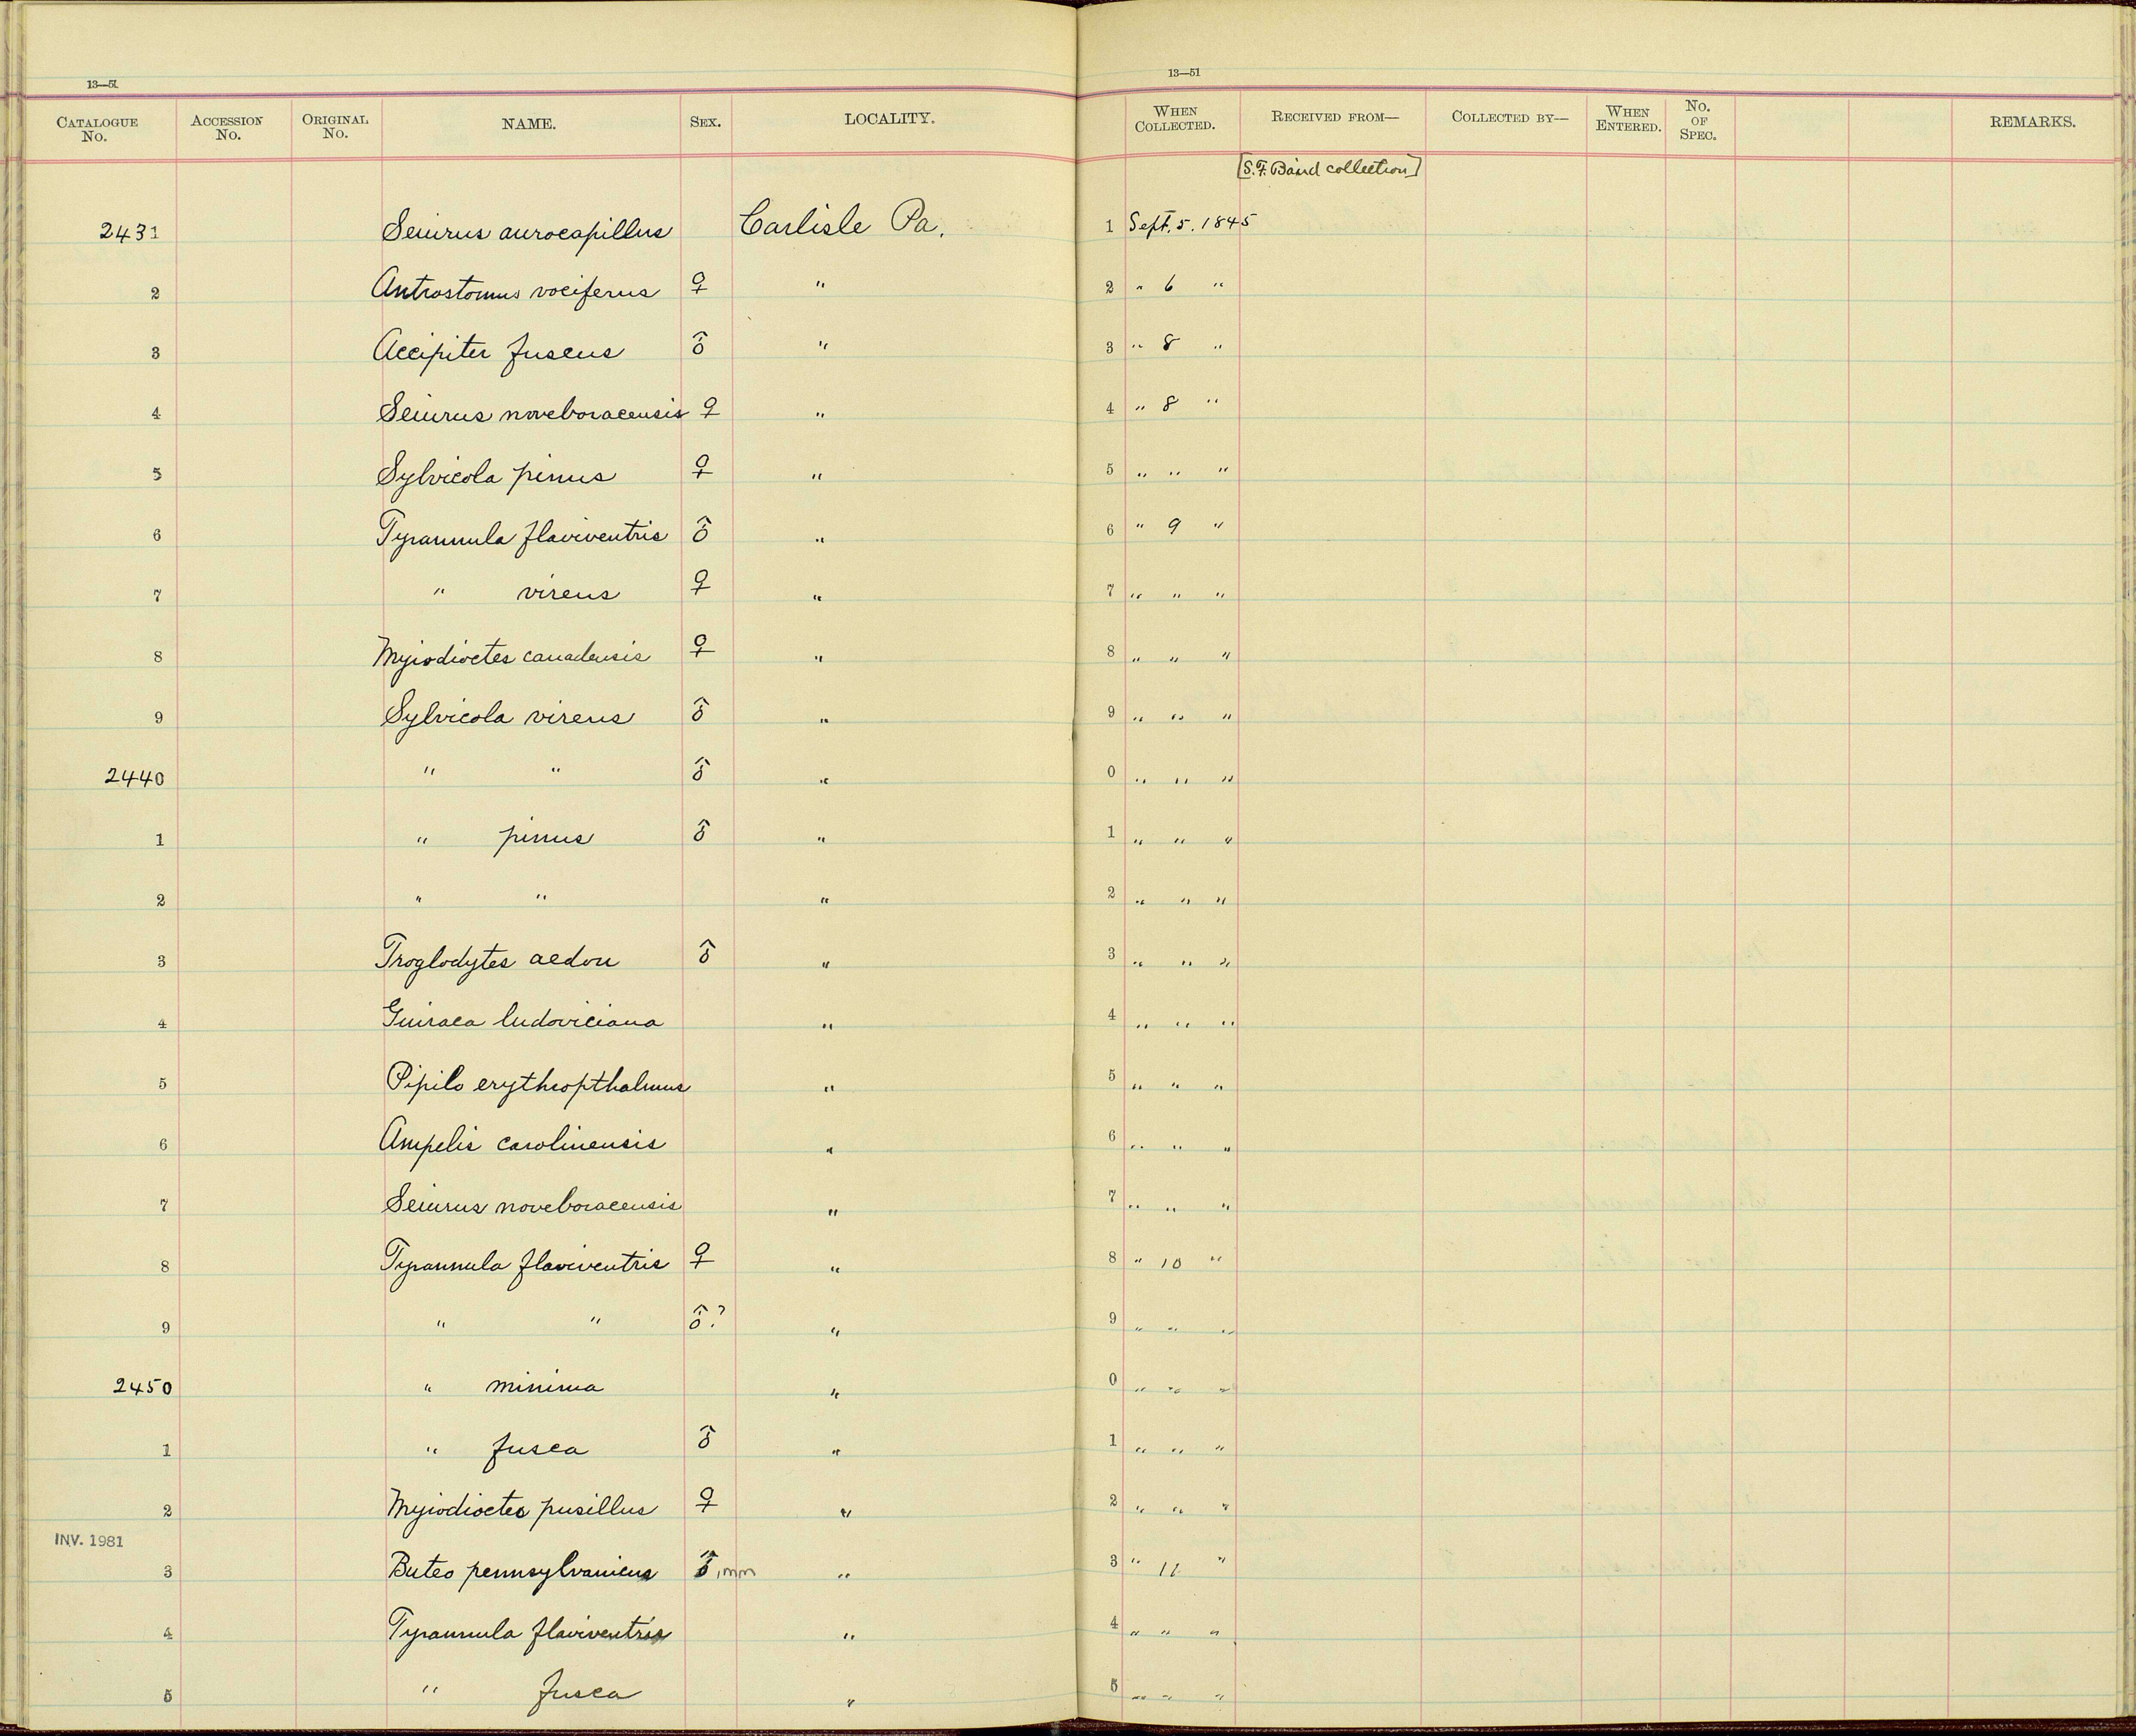 13—51
13—51
CATALOGUE No. ACCESSION No. ORIGINAL No. NAME. SEX. LOCALITY. WHEN COLLECTED. RECEIVED FROM— COLLECTED BY— WHEN ENTERED. No. OF SPEC. REMARKS.
[S. F. Baird collection]
2431 Seiurus aurocapillus Carlisle Pa. 1 Sept. 5. 1845
2 Antrostomus vociferus ♀ " 2 " 6 "
3 Accipiter fuscus ♂ " 3 " 8 "
4 Seiurus noveboracensis ♀ " 4 " 8 "
5 Sylvicola pinus ♀ " 5 " " "
6 Tyrannula flaviventris ♂ " 6 " 9 "
7 " virens ♀ " 7 " " "
8 Myiodioctes canadensis ♀ " 8 " " "
9 Sylvicola virens ♂ " 9 " " "
2440 " " ♂ " 0 " " "
1 " pinus ♂ " 1 " " "
2 " " " 2 " " "
3 Troglodytes aedon ♂ " 3 " " "
4 Guiraca ludoviciana " 4 " " "
5 Pipilo erythropthalmus " 5 " " "
6 Ampelis carolinensis " 6 " " "
7 Seiurus noveboracensis " 7 " " "
8 Tyrannula flaviventris ♀ " 8 " 10 "
9 " " ♂? " 9 " " "
2450 " minima " 0 " " "
1 " fusca ♂ " 1 " " "
2 Myiodioctes pusillus ♀ " 2 " " "
INV. 1981
3 Buteo pennsylvanicus ♂, mm " 3 " 11 "
4 Tyrannula flaviventris " 4 " " "
5 " fusca " 5 " " "